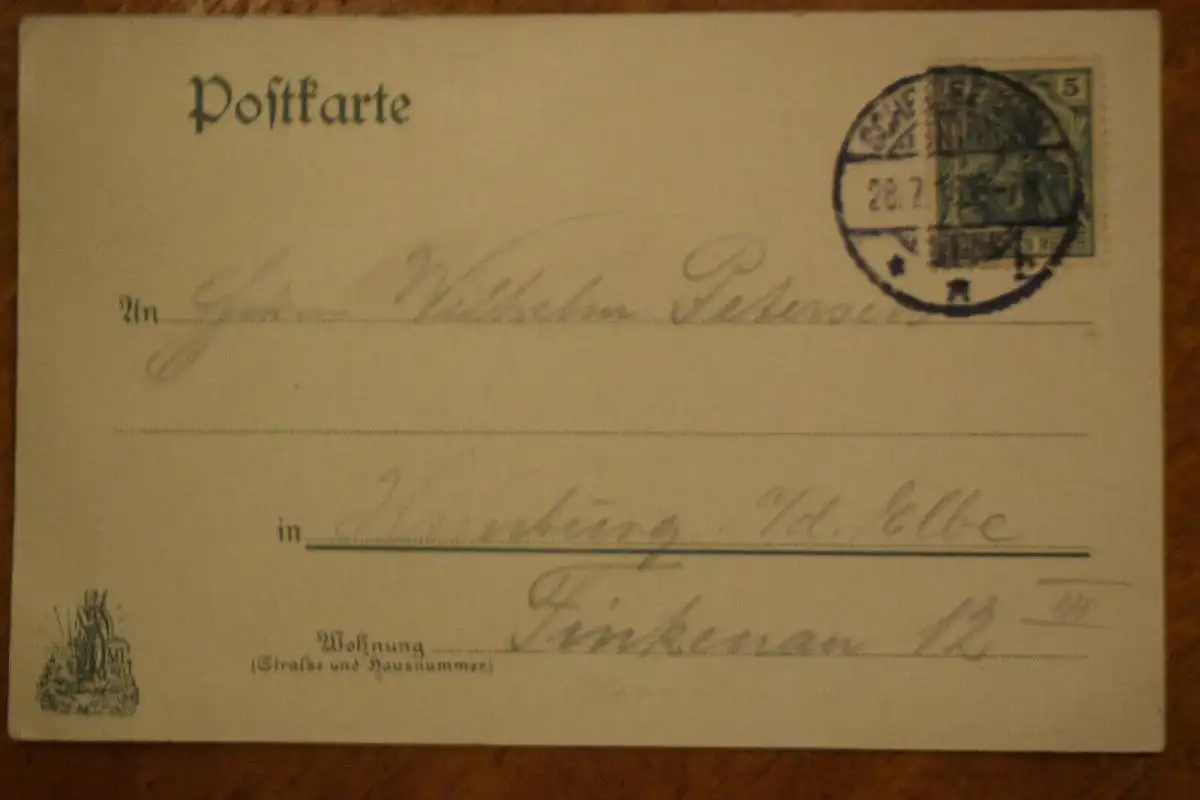 Postkarte
5
28.7.
An Herrn Wilhelm Petersen
in Hamburg a/d. Elbe
Wohnung Finkenau 12 III
(Straße und Hausnummer)